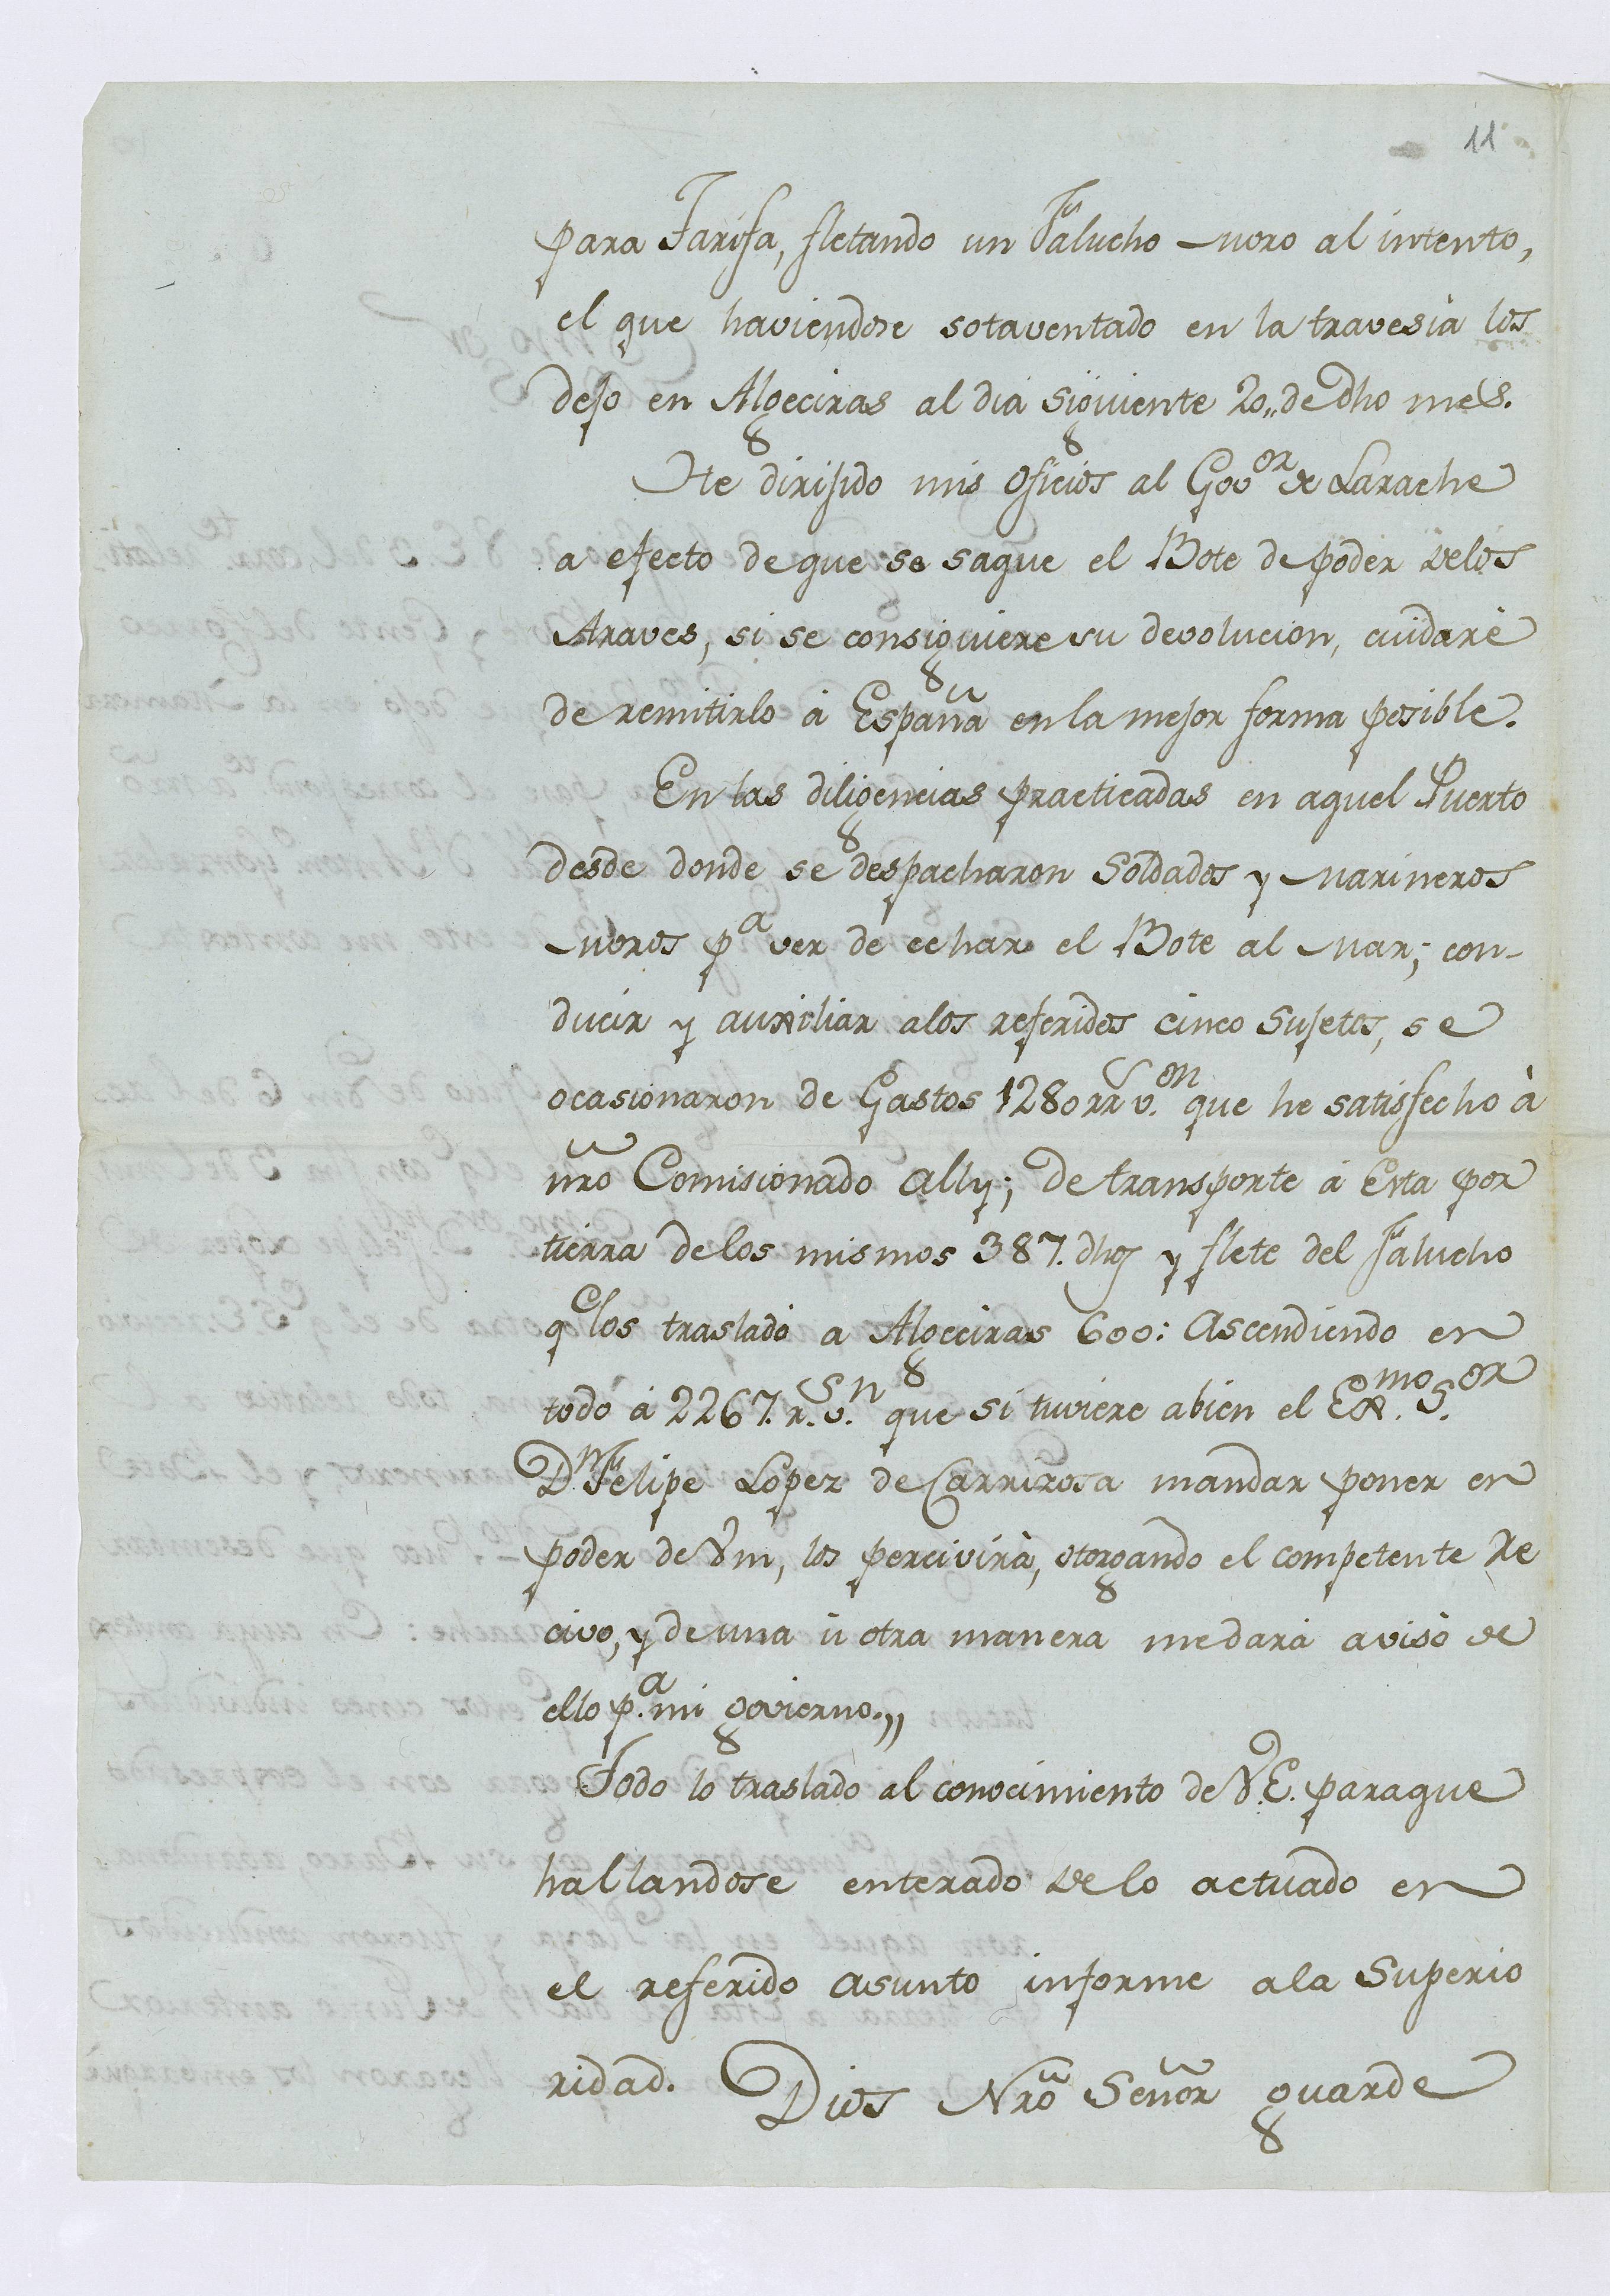 11
para Tarifa, fletando un Falucho moro al intento,
el que haviendose sotaventado en la travesia los
dejo en Algeciras al dia siguiente 20,, de dho mes.
He dirijido mis oficios al Gov.or de Larache
a efecto de que se saque el Bote de poder de los
Araves, si se consiguiere su devolucion, cuidarè
de remitirlo à España en la mejor forma posible.
En las diligencias practicadas en aquel Puerto
desde donde se despacharon Soldados y marineros
moros pa ver de echar el Bote al mar; con-
ducir y auxiliar a los referidos cinco Sujetos, se
ocasionaron de Gastos 1280 rr v.on que he satisfecho à
nrō Comisionado Ally; de transporte à Esta por
tierra de los mismos 387. dhos y flete del Falucho
qe los traslado a Algeciras 600: Ascendiendo en
todo à 2267. rs. vn. que si tuviere abien el Exmo. S.or
Dn. Felipe Lopez de Carrirosa mandar poner en
poder de Vm, los percivirà, otorgando el competente Re
civo, y de una ù otra manera me darà aviso de
ello p.a mi govierno.,,
Todo lo traslado al conocimiento de V.E. paraque
hallandose enterado de lo actuado en
el referido asunto informe ala Superio
ridad. Dios Nrō Señor guarde